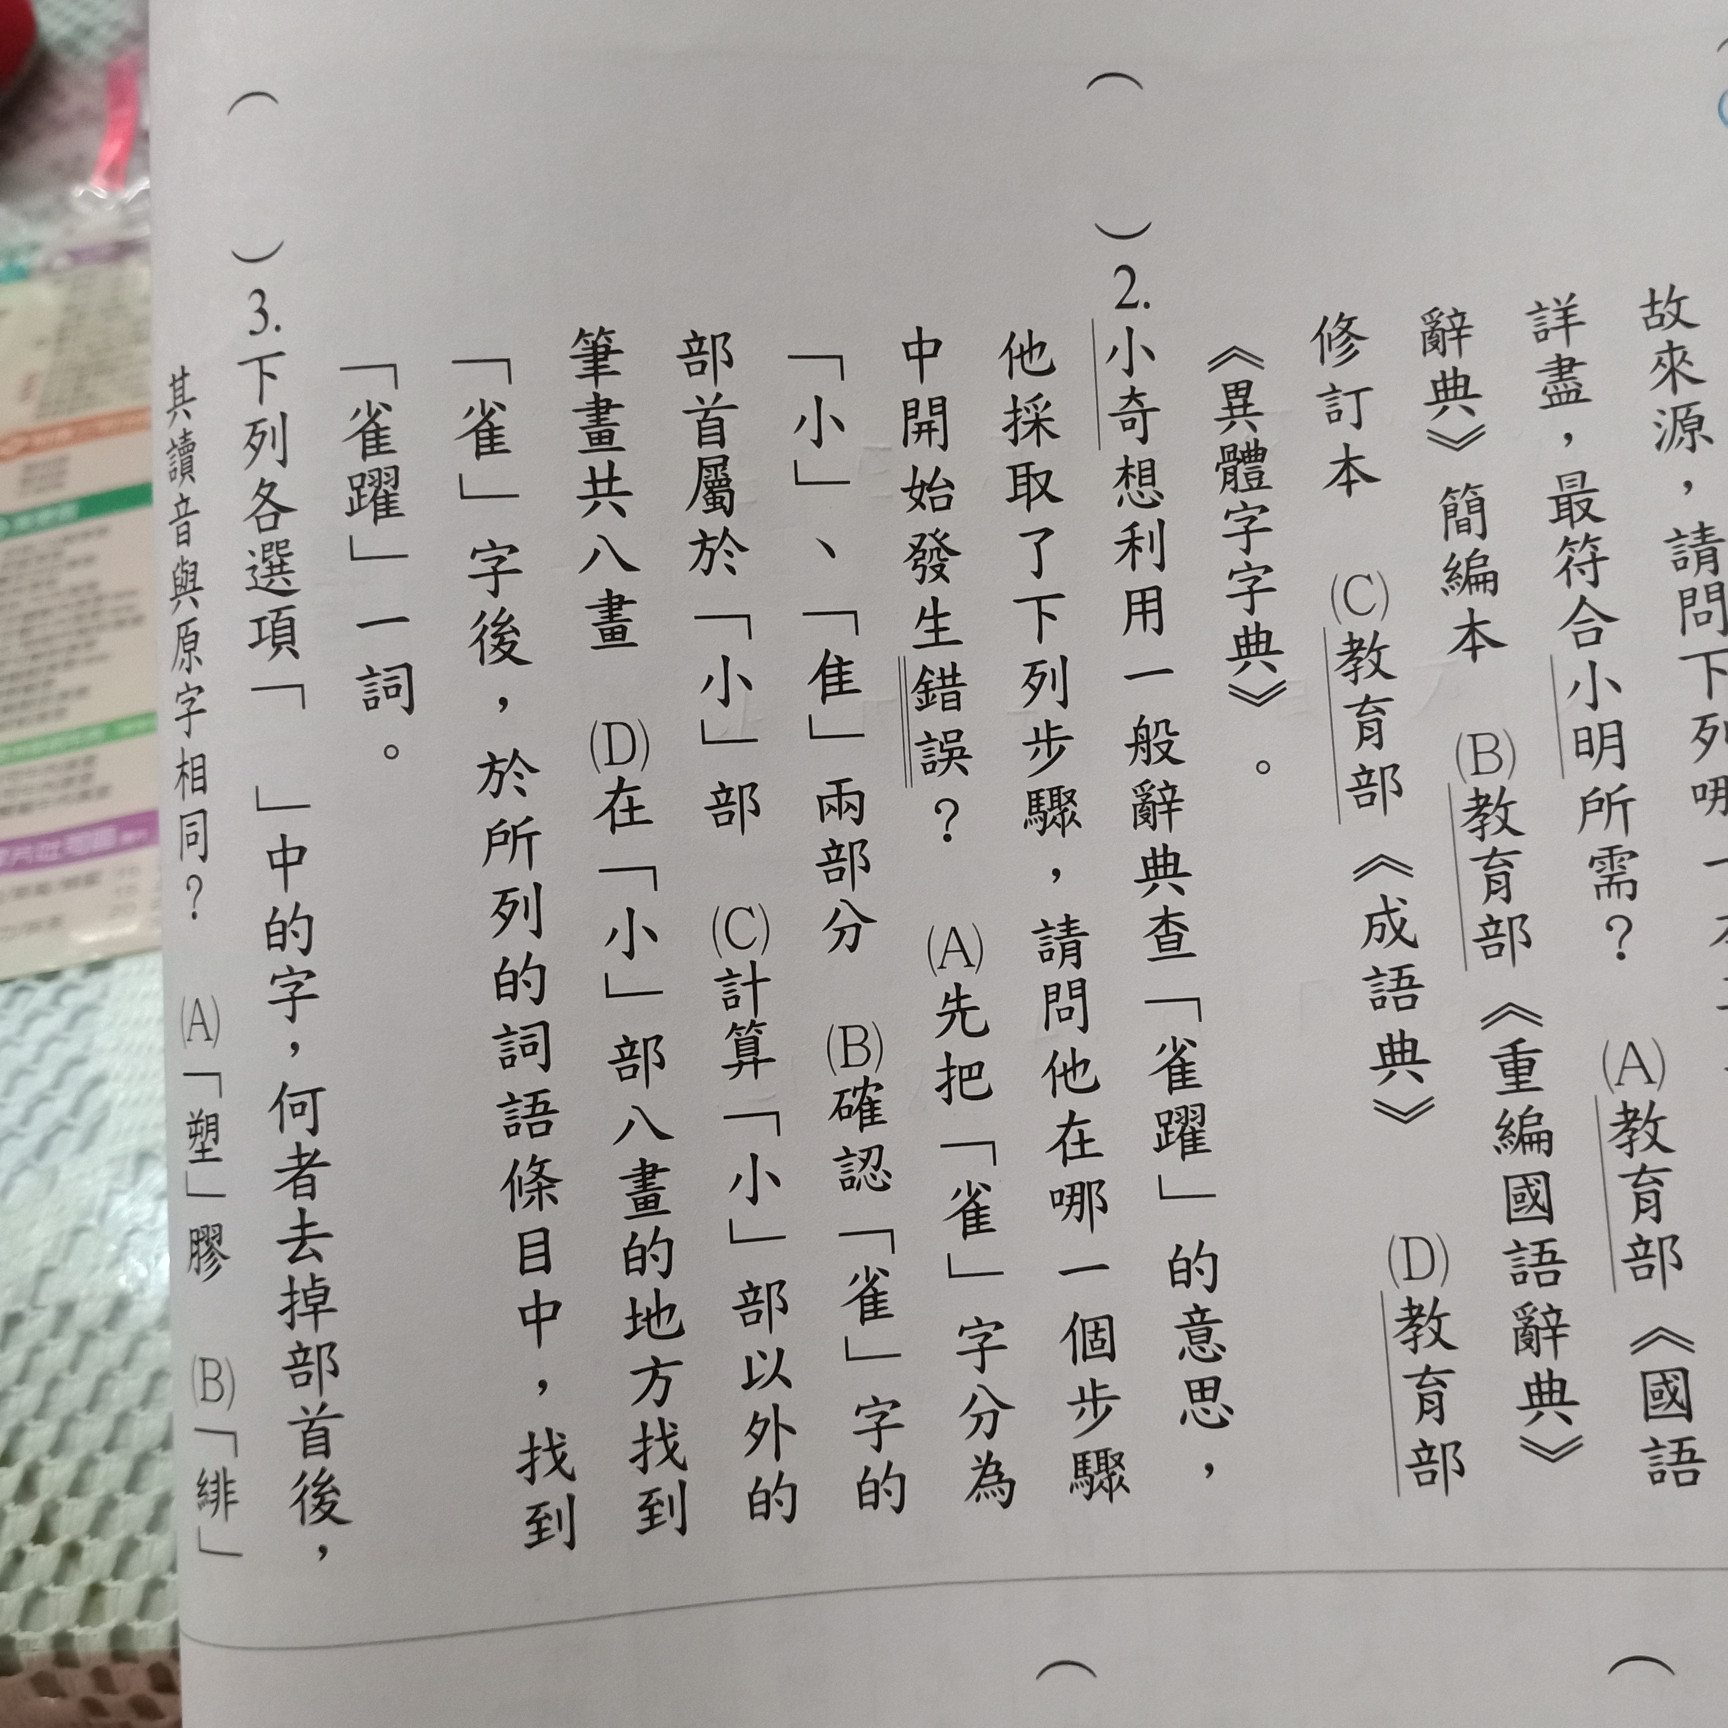 故來源，請問下列哪一本
詳盡，最符合小明所需？ (A)教育部《國語
辭典》簡編本 (B)教育部《重編國語辭典》
修訂本 (C)教育部《成語典》 (D)教育部
《異體字字典》。
( )2.小奇想利用一般辭典查「雀躍」的意思，
他採取了下列步驟，請問他在哪一個步驟
中開始發生錯誤？ (A)先把「雀」字分為
「小」、「隹」兩部分 (B)確認「雀」字的
部首屬於「小」部 (C)計算「小」部以外的
筆畫共八畫 (D)在「小」部八畫的地方找到
「雀」字後，於所列的詞語條目中，找到
「雀躍」一詞。
( )3.下列各選項「 」中的字，何者去掉部首後，
其讀音與原字相同？ (A)「塑」膠 (B)「緋」